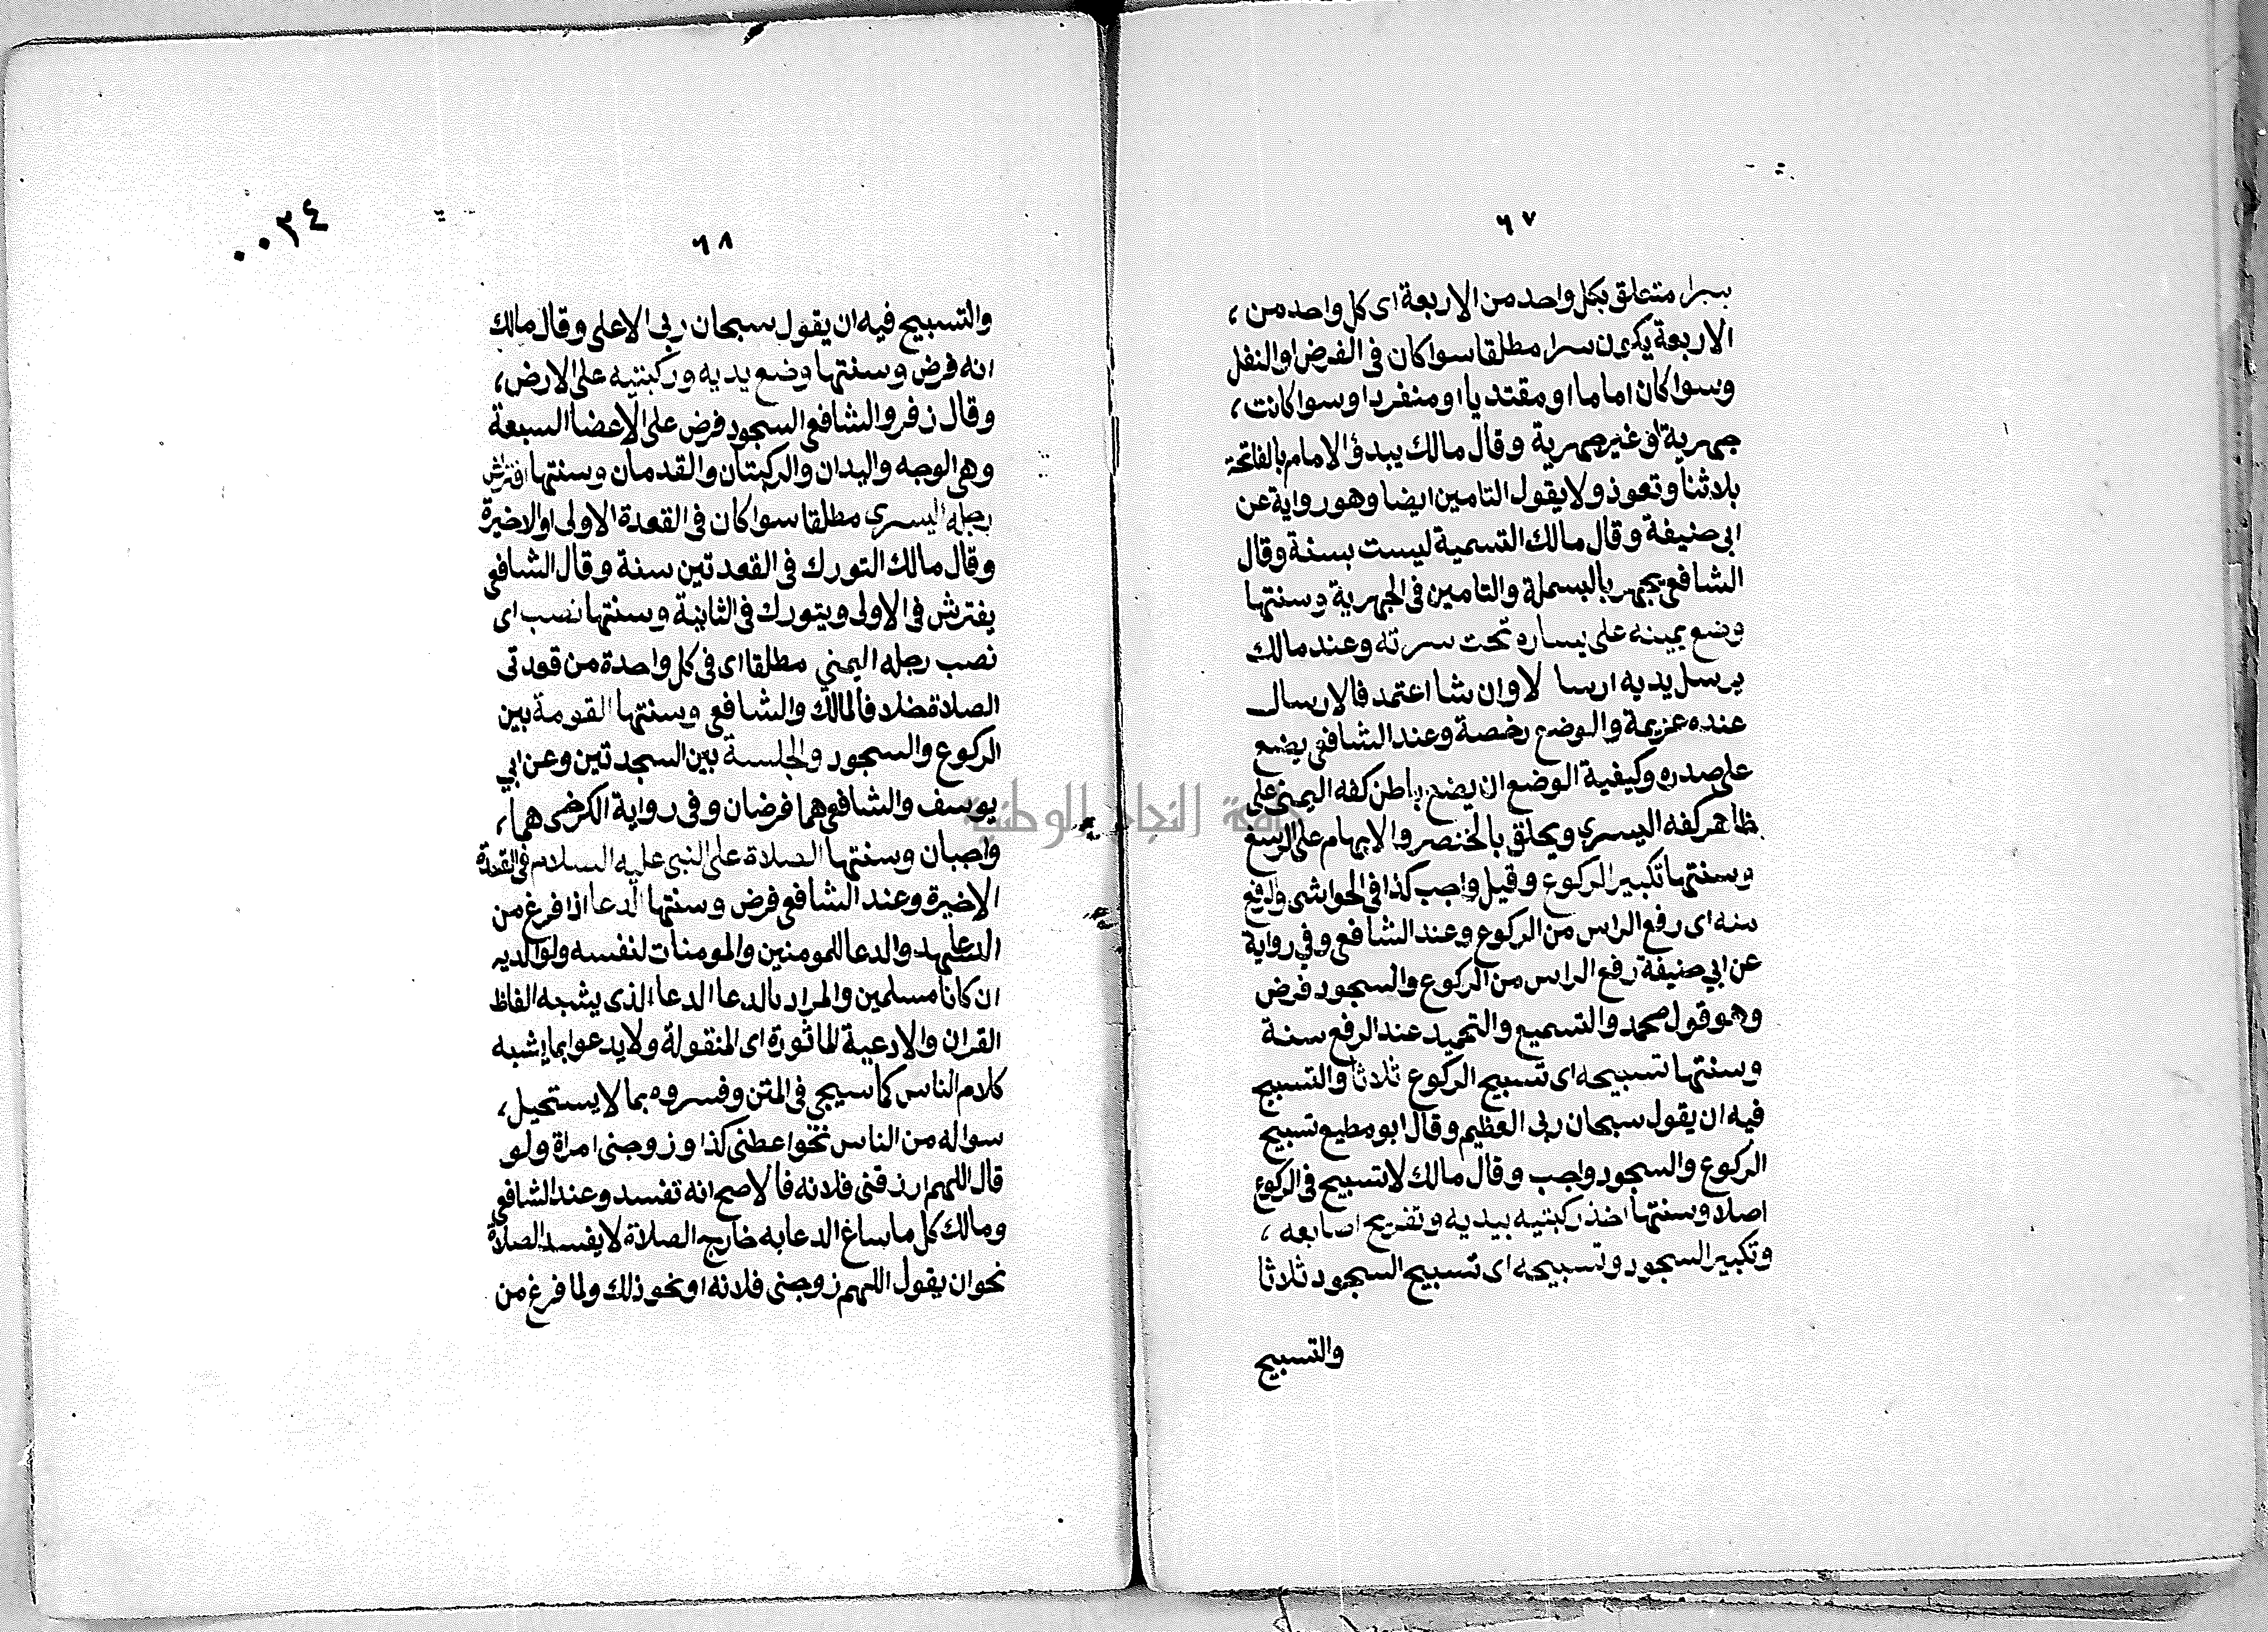 ٦٧
سرا متعلق بكل واحد من الاربعة اى كل واحد من ،
الاربعة يكون سرا مطلقا سوا كان فى الفرض او النفل
وسوا كان اماما او مقتديا او منفردا وسوا كانت ،
جهرية او غير جهرية وقال مالك يبدؤ الامام بالفاتحة
بلا ثنا وتعوذ ولا يقول التامين ايضا وهو رواية عن
ابى حنيفة وقال مالك التسمية ليست بسنة وقال
الشافعى يجهر بالبسملة والتامين فى الجهرية وسنتها
وضع يمينه على يساره تحت سرته وعند مالك
يرسل يديه ارسا لا وان شا اعتمد فالارسال
عنده عزيمة والوضع رخصة وعند الشافعى يضع
على صدره وكيفية الوضع ان يضع باطن كفه اليمنى على
ظاهر كفه اليسرى ويحلق بالخنصر والابهام على الرسغ
وسنتها تكبير الركوع وقيل واجب كذا فى الحواشى والرفع
منه اى رفع الراس من الركوع وعند الشافعى وفى رواية
عن ابي حنيفة رفع الراس من الركوع والسجود فرض
وهو قول محمد والتسميع والتحميد عند الرفع سنة
وسنتها تسبيحه اى تسبيح الركوع ثلاثا والتسبيح
فيه ان يقول سبحان ربى العظيم وقال ابو مطيع تسبيح
الركوع والسجود واجب وقال مالك لا تسبيح فى الركوع
اصلا وسنتها اخذ ركبتيه بيديه وتفريج اصابعه ،
وتكبير السجود وتسبيحه اى تسبيح السجود ثلاثا
والتسبيح
٠٠٣٤
٦٨
والتسبيح فيه ان يقول سبحان ربى الاعلى وقال مالك
انه فرض وسنتها وضع يديه وركبتيه على الارض ،
وقال زفر والشافعى السجود فرض على الاعضا السبعة
وهى الوجه واليدان والركبتان والقدمان وسنتها افتراش
رجله اليسرى مطلقا سوا كان فى القعدة الاولى او الاخيرة
وقال مالك التورك فى القعدتين سنة وقال الشافعى
يفترش فى الاولى ويتورك فى الثانية وسنتها نصب اى
نصب رجله اليمني مطلقا اى فى كل واحدة من قودتى
الصلاة خلافا لمالك والشافعى وسنتها القومة بين
الركوع والسجود والجلسة بين السجدتين وعن ابي
يوسف والشافعى هما فرضان وفى رواية الكرخى هما ،
واجبان وسنتها الصلاة على النبى عليه السلام فى القعدة
الاخيرة وعند الشافعى فرض وسنتها الدعا اذا فرغ من
والدعا للمومنين والمومنات لنفسه ولوالديه
ان كانا مسلمين والمراد بالدعا الدعا الذى يشبه الفاظ
القران والادعية الماثورة اى المنقولة ولا يدعوا بما يشبه
كلام الناس كما سيجي فى المتن وفسروه بما لا يستحيل ،
سواله من الناس نحو اعطنى كذا وزوجنى امراة ولو
قال اللهم ارزقنى فلانه فالاصح انه تفسد وعند الشافعى
ومالك كل ما ساغ الدعا به خارج الصلاة لا يفسد الصلاة
نحو ان يقول اللهم زوجنى فلانه او نحو ذلك ولما فرغ من